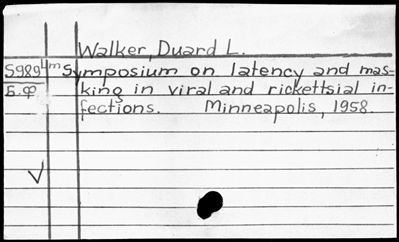 Walker, Duard L.
S989 4m Symposium on latency and mas-
Б.ф king in viral and rickettsial in-
fections. Minneapolis, 1958.